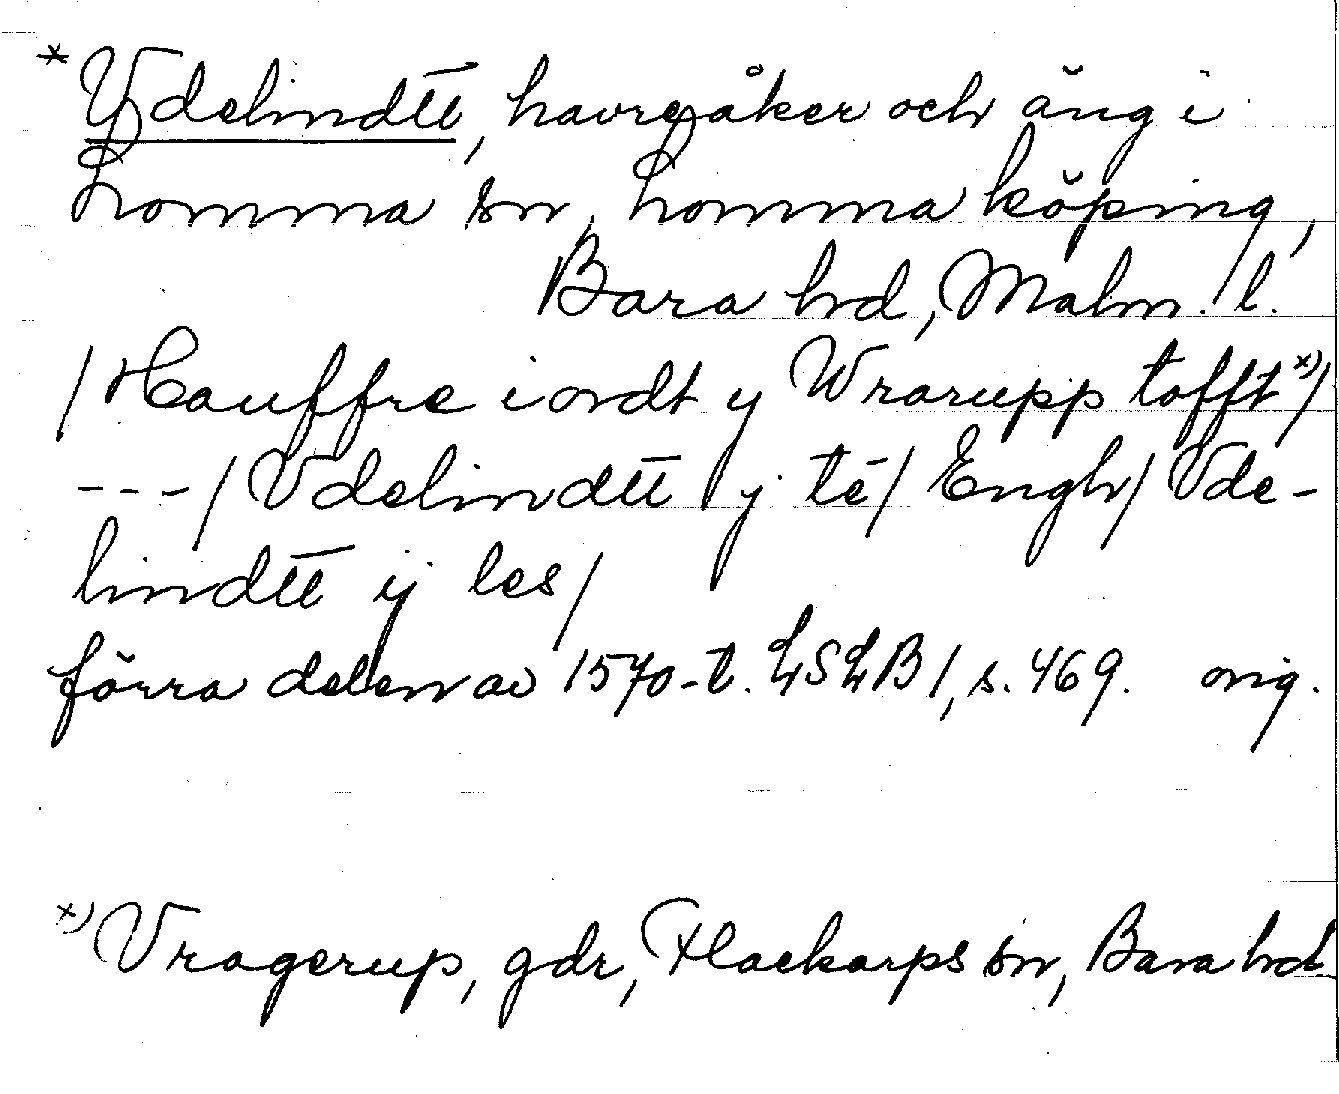 * Vdelindtt, havreåker och äng i
Lomma sn, Lomma köping,
Bara hd, Malm. l.
/Hauffre iordt y Wrarupp tofft x)/
---/Vdelindtt y tē/Engh/Vde-
lindtt ij les/
förra delen av 1570-t. LSLB 1, s. 469. orig.
x) Vragerup, gdr, Flackarps sn, Bara hd